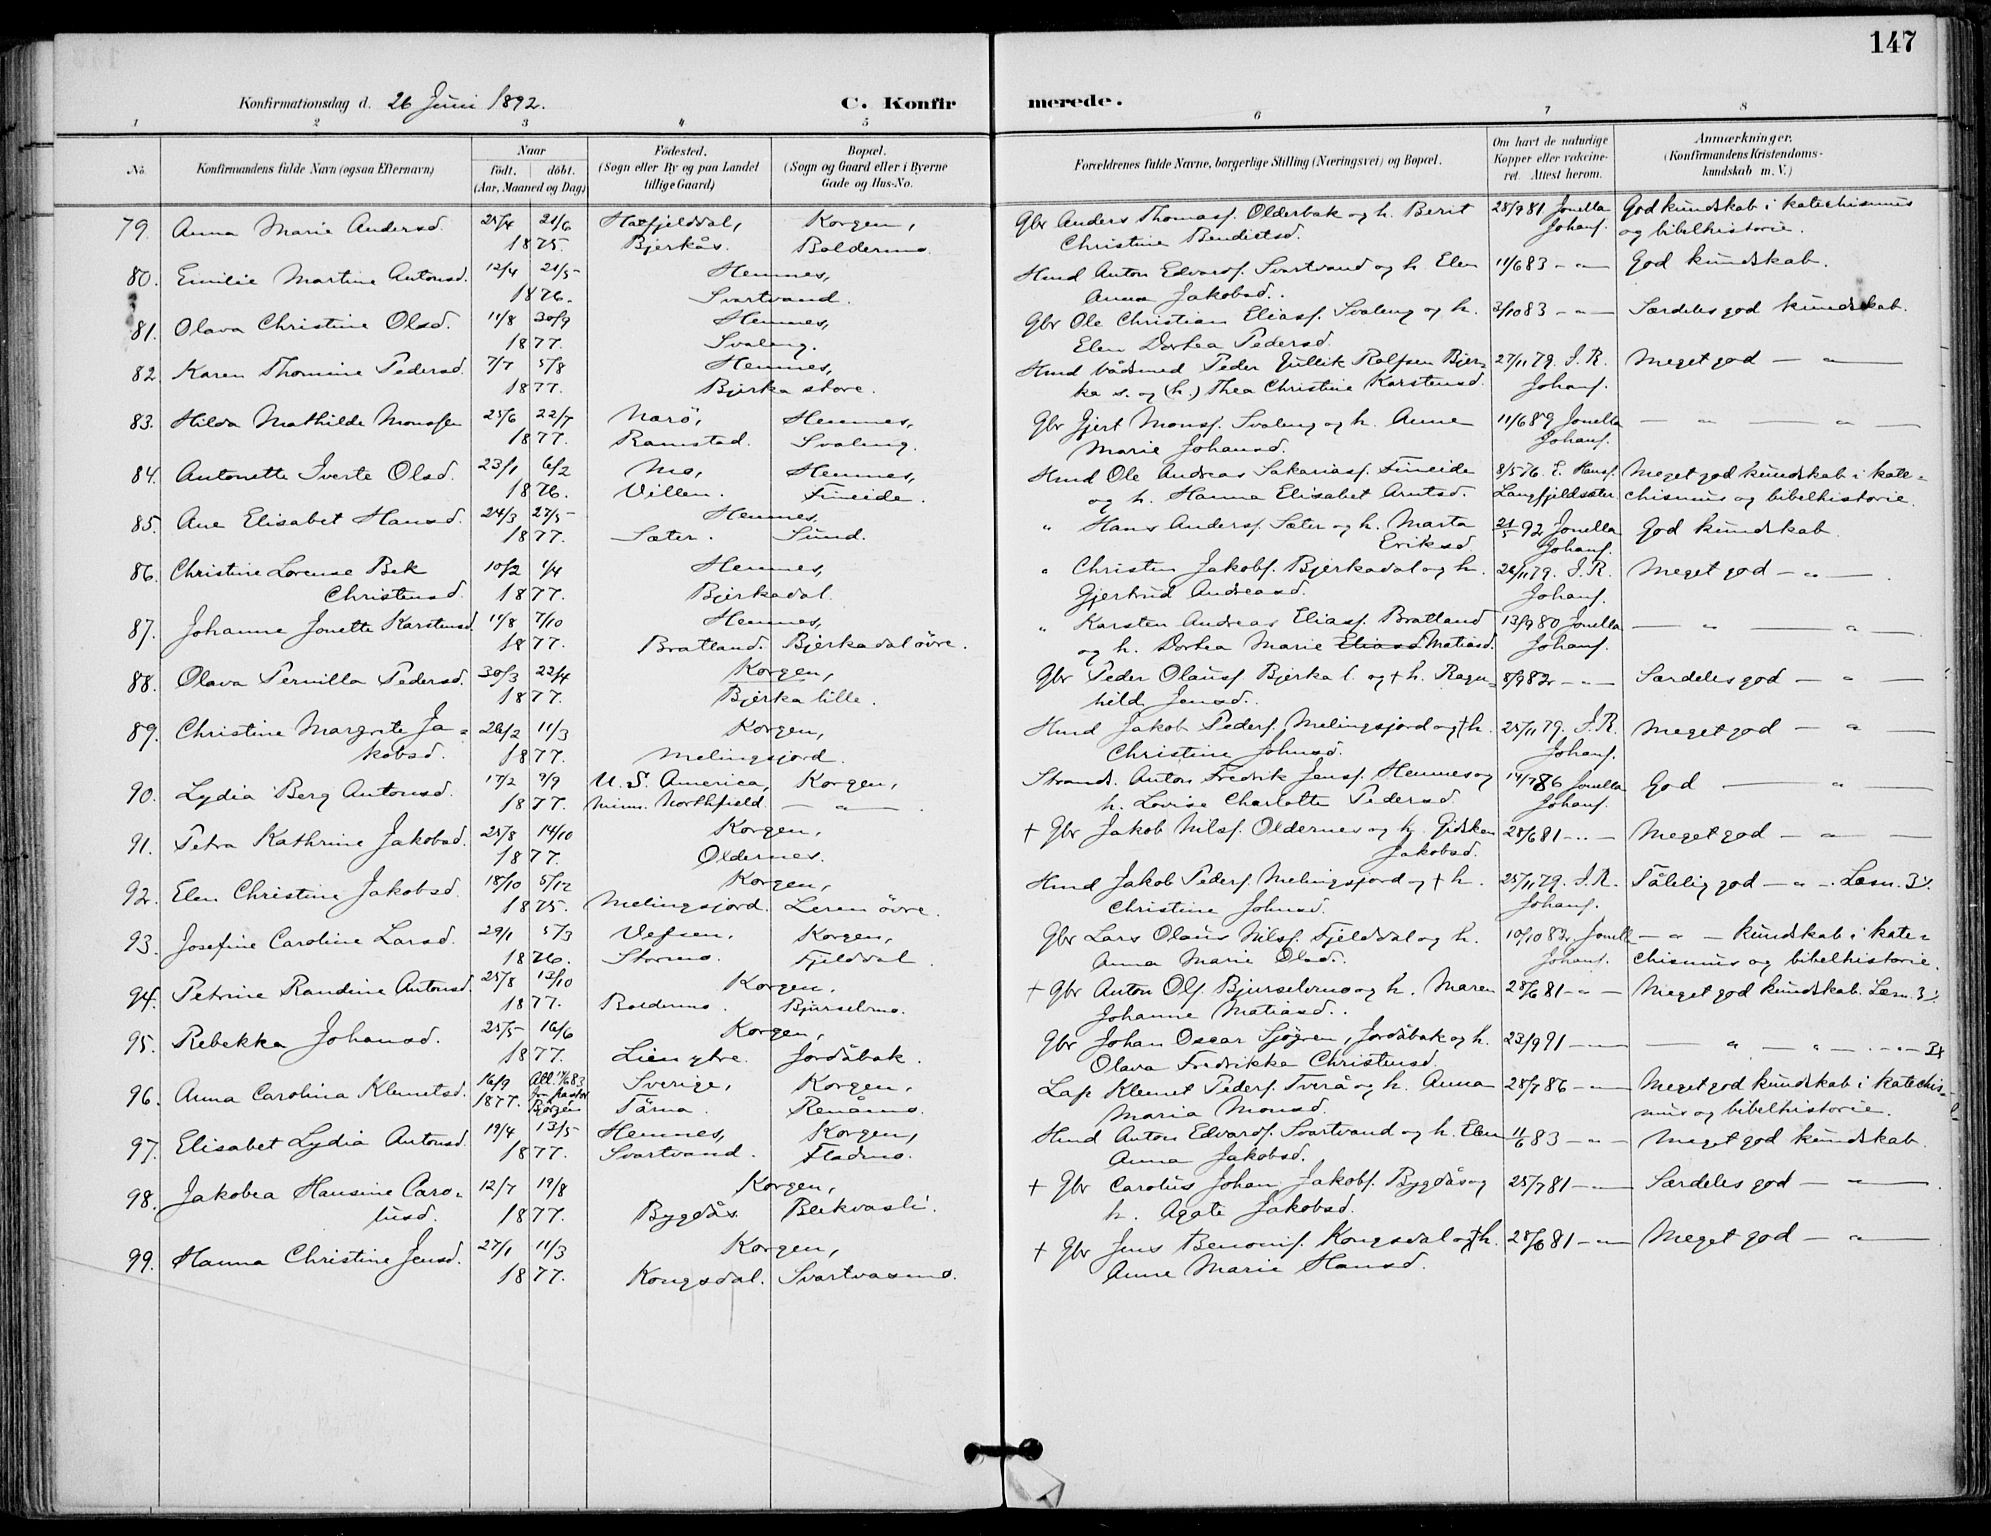 147
Konfirmationsdag d. 26 Juni 1892. C. Konfirmerede.
1 2 3 4 5 6 7 8
No. Konfirmandens fulde Navn (ogsaa Efternavn) Naar født. døbt. (Aar, Maaned og Dag) Fødested. (Sogn eller By og paa Landet tillige Gaard) Bopæl. (Sogn og Gaard eller i Byerne Gade og Hus-No. Forældrenes fulde Navne, borgerlige Stilling (Næringsvei) og Bopæl. Om havt de naturlige Kopper eller vakcineret. Attest herom. Anmærkninger. (Konfirmandens Kristendomskundskab m. V.)
79. Anna Marie Andersd. 25/4 21/6 Hatfjelddal, Korgen, Gbr Anders Thomasf. Olderbak og h. Berit 28/9 81 Jonella God kundskab i katechismus
1875. Bjerkås. Boldermo. Christine Bendictsd. Johanf. og bibelhistorie.
80. Emilie Martine Antonsd. 12/4 21/5 Hemnes, Hmd Anton Edvardf. Svartvand og h. Elen 11/6 83 - " - God kundskab.
1876. Svartvand. Anna Jakobsd.
81. Olava Christine Olsd. 11/8 30/9 Hemnes, Gbr Ole Christian Eliasf. Svaleng og h. 3/10 83 - " - Særdeles god kundskab.
1877. Svaleng. Elen Dorhea Pedersd.
82. Karen Thomine Pedersd. 7/7 5/8 Hemnes, Hmd bådsmd Peder Gullik Rolfsen Bjer- 27/11 79. I. R. Meget god - " -
1877. Bjerka store. ka s. og (h.) Thea Christine Karstensd. Johanf.
83. Hilda Mathilde Monssen 25/6 22/7 Nærö, Hemnes, Gbr Gjert Monsf. Svaleng og h. Anne 11/6 89 Jonella - " - " -
1877. Ramstad. Svaleng. Marie Johansd. Johanf.
84. Antonette Iverte Olsd. 23/1 6/2 Mo, Hemnes, Hmd Ole Andreas Sakariasf. Fineide 8/5 76. E. Hansf. Meget god kundskab i kate-
1876. Villen. Fineide. og h. Hanna Elisabet Arntsd. Langfjeldsæter. chismus og bibelhistorie.
85. Ane Elisabet Hansd. 24/3 27/5 Hemnes, " Hans Andersf. Sæter og h. Marta 21/5 92 Jonella God kundskab.
1877. Sæter. Sund. Eriksd. Johanf.
86. Christine Lorense Bek 10/2 1/4 Hemnes, " Christen Jakobf. Bjerkadal og h. 28/11 79. I. R. Meget god - " -
Christensd. 1877. Bjerkadal. Gjertrud Andreasd. Johanf.
87. Johanne Jonette Karstensd. 11/8 7/10 Hemnes, " Karsten Andreas Eliasf. Bratland 13/9 80 Jonella - " - " -
1877. Bratland. Bjerkadal övre. og h. Dorhea Marie Eliasd Matiasd. Johanf.
88. Olava Pernilla Pedersd. 30/3 22/4 Korgen, Gbr Peder Olausf. Bjerka l. og + h. Ragn- 8/9 82 - " - Særdeles god - " -
1877. Bjerka lille. hild Jensd.
89. Christine Margrete Ja- 26/2 11/3 Korgen, Hmd Jakob Pedersf. Melingsjord og + h. 25/11 79. I. R. Meget god - " -
kobsd. 1877. Melingsjord. Christine Johnsd. Johanf.
90. Lydia Berg Antonsd. 17/2 9/9 U. S. America, Korgen, Strands. Anton Fredrik Jensf. Hemnes og 14/7 86 Jonella God - " -
1877. Minn. Northfield. - " - h. Lovise Charlotte Pedersd. Johanf.
91. Petra Kathrine Jakobsd. 25/8 14/10 Korgen, + Gbr Jakob Nilsf. Oldernes og h. Gidsken 28/6 81 - " - Meget god - " -
1877. Oldernes. Jakobsd.
92. Elen Christine Jakobsd. 18/10 5/12 Korgen, Hmd Jakob Pedersf. Melingsjord og + h. 25/11 79. I. R. Tålelig god - " -. Læsn. 3%.
1875. Melingsjord. Leren övre. Christine Johnsd. Johanf.
93. Josefine Caroline Larsd. 29/1 5/3 Vefsen, Korgen, Gbr Lars Olaus Nilsf. Fjelddal og h. 10/10 82 Jonella - " - kundskab i kate-
1876. Stormo. Fjelddal. Anna Marie Olsd. Johanf. chismus og bibelhistorie.
94. Petrine Randine Antonsd. 25/8 13/10 Korgen, + Gbr Anton Olf. Bjurselvmo og h. Maren 28/6 81 - " - Meget god kundskab. Læsn. 3%.
1877. Boldermo. Bjurselvmo. Johanne Matiasd.
95. Rebekka Johansd. 25/5 16/6 Korgen, Gbr Johan Oscar Sjögren, Jordåbak og h. 23/9 91 - " - - " - " -
1877. Lien ytre. Jordåbak. Olava Fredrikke Christensd.
96. Anna Carolina Klemetsd. 16/9 Att. 17/6 83 Sverige, Korgen, Lap Klemet Pedersf. Tverå og h. Anna 28/7 86 - " - Meget god kundskab i katechis-
1877. fra pastor Björgen Tärna. Renåmo. Maria Monsd. mus og bibelhistorie.
97. Elisabet Lydia Antonsd. 19/4 13/5 Hemnes, Korgen, Hmd Anton Edvardf. Svartvand og h. Elen 11/6 83 - " - Meget god kundskab.
1877. Svartvand. Fladmo. Anna Jakobsd.
98. Jakobea Hansine Caro- 12/7 19/8 Korgen, + Gbr Carolus Johan Jakobf. Bygdås og 25/7 81 - " - Særdeles god - " -
lusd. 1877. Bygdås. Blekvasli. h. Agate Jakobsd.
99. Hanna Christine Jensd. 27/1 11/3 Korgen, + Gbr Jens Benonif. Kongsdal og + h. 28/6 81 - " - Meget god - " -
1877. Kongsdal. Svartvasmo. Anne Marie Hansd.